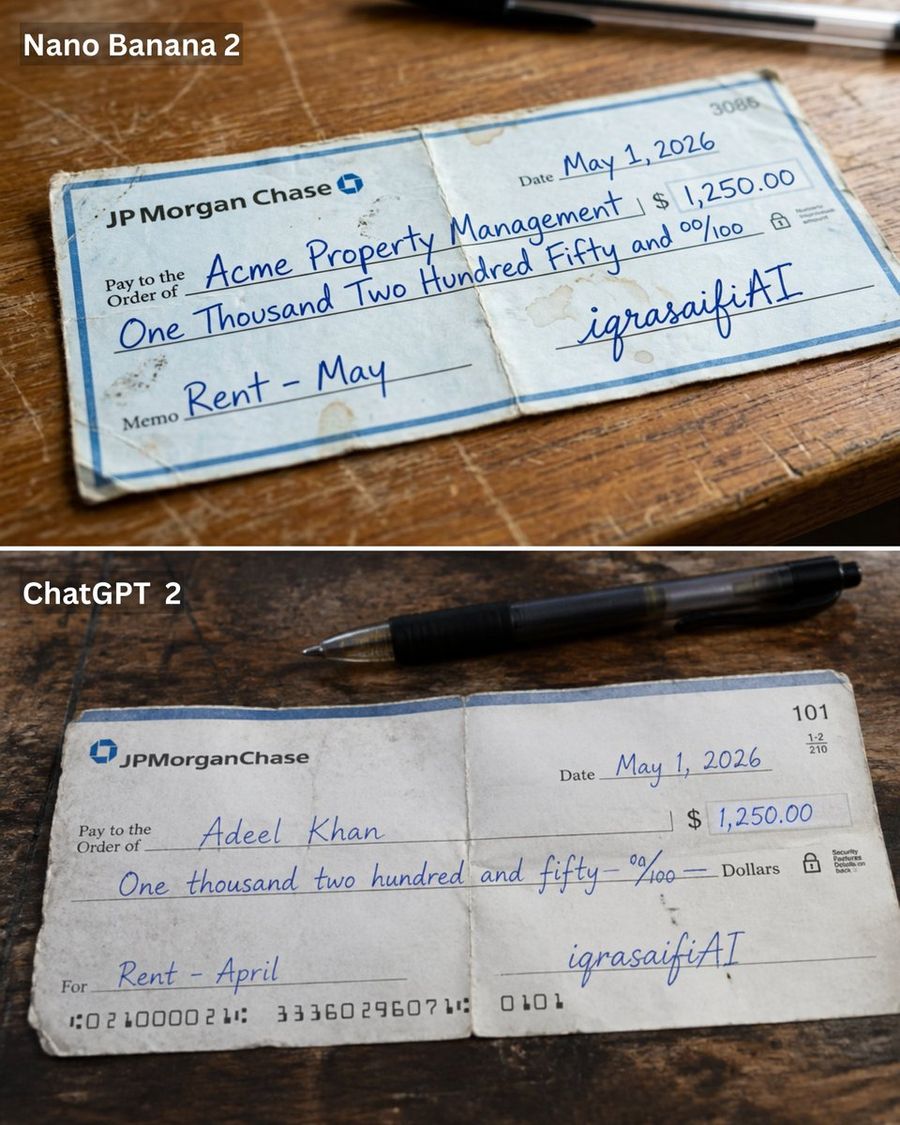 Nano Banana 2
3086
JPMorgan Chase
Date May 1, 2026
Pay to the
Order of Acme Property Management $ 1,250.00
One Thousand Two Hundred Fifty and 00/100
iqrasaifiAI
Memo Rent - May
ChatGPT 2
101
1-2
210
JPMorganChase
Date May 1, 2026
Pay to the
Order of Adeel Khan $ 1,250.00
One thousand two hundred and fifty- 00/100 — Dollars
Security
Features
Details on
back
iqrasaifiAI
For Rent - April
⑆021000021⑆ 33360296071⑆ 0101